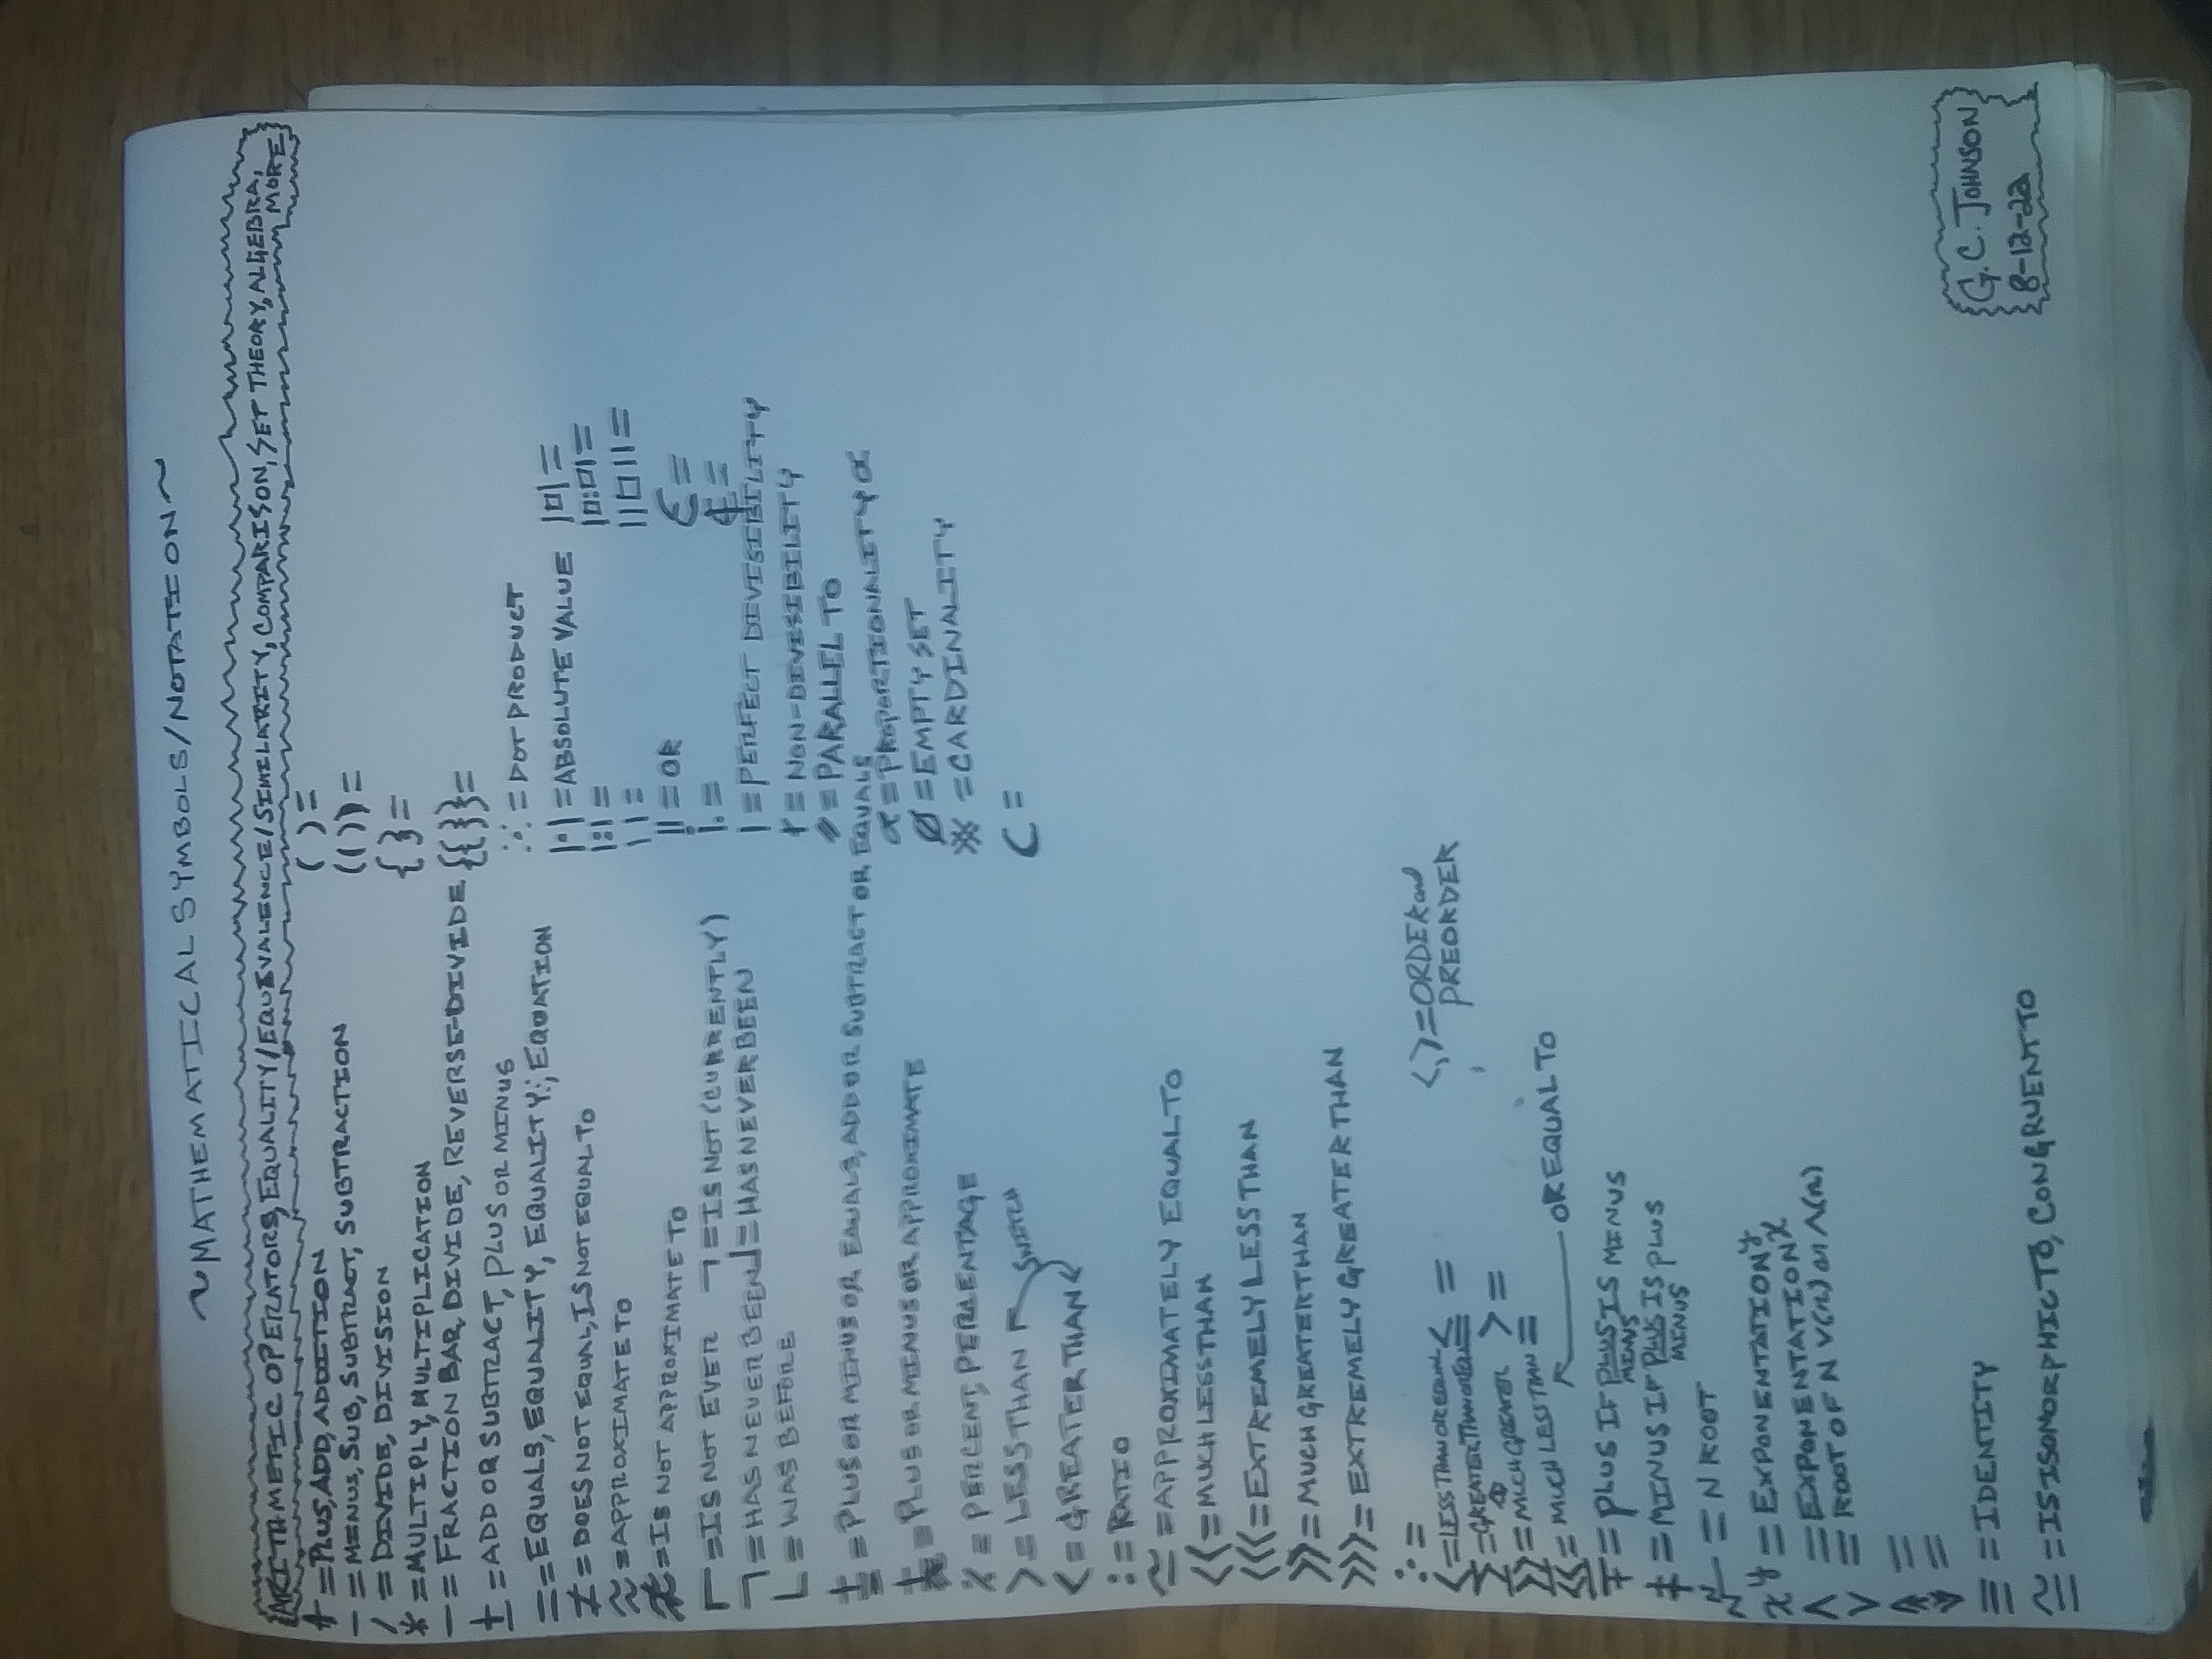 ~MATHEMATICAL SYMBOLS/NOTATION~
ARITHMETIC OPERATORS, EQUALITY/EQUIVALENCE/SIMILARITY, COMPARISON, SET THEORY, ALGEBRA,
MORE
+ = PLUS, ADD, ADDITION
- = MINUS, SUB, SUBTRACT, SUBTRACTION
/ = DIVIDE, DIVISION
* = MULTIPLY, MULTIPLICATION
— = FRACTION BAR, DIVIDE, REVERSE-DIVIDE
± = ADD OR SUBTRACT, PLUS OR MINUS
= = EQUALS, EQUALITY, EQUALITY:, EQUATION
≠ = DOES NOT EQUAL, IS NOT EQUAL TO
≈ = APPROXIMATE TO
≉ = IS NOT APPROXIMATE TO
⌐ = IS NOT EVER ¬ = IS NOT (CURRENTLY)
¬ = HAS NEVER BEEN ┘ = HAS NEVER BEEN
L = WAS BEFORE
= PLUS OR MINUS OR EQUALS, ADD OR SUBTRACT OR EQUALS
= PLUS OR MINUS OR APPROXIMATE
% = PERCENT, PERCENTAGE
> = LESS THAN
SWITCH
< = GREATER THAN
: = RATIO
≃ = APPROXIMATELY EQUAL TO
<< = MUCH LESS THAN
<<< = EXTREMELY LESS THAN
>> = MUCH GREATER THAN
>>> = EXTREMELY GREATER THAN
∴ =
≤ = LESS THAN OR EQUAL ≦ =
≥ = GREATER THAN OR EQUAL
>> = MUCH GREATER ≧ =
<< = MUCH LESS THAN
OR EQUAL TO
<,> = ORDER and
PREORDER
∓ = PLUS IF PLUS IS MINUS
MINUS
‡ = MINUS IF PLUS IS PLUS
MINUS
= N ROOT
x^y = EXPONENTATION^y
∧ = EXPONENTATION^x
∨ = ROOT OF N V(n) or Λ(n)
=
=
≡ = IDENTITY
≅ = IS ISOMORPHIC TO, CONGRUENT TO
( ) =
(( )) =
{ } =
{{ }} =
= DOT PRODUCT
|·| = ABSOLUTE VALUE |□| =
|:| = |□:□| =
| | = ||□|| =
|| = OR Є =
|. = =
| = PERFECT DIVISIBILITY
∤ = NON-DIVISIBILITY
// = PARALLEL TO
∝ = PROPORTIONALITY ∝
Ø = EMPTY SET
= CARDINALITY
C =
G.C. JOHNSON
8-12-22